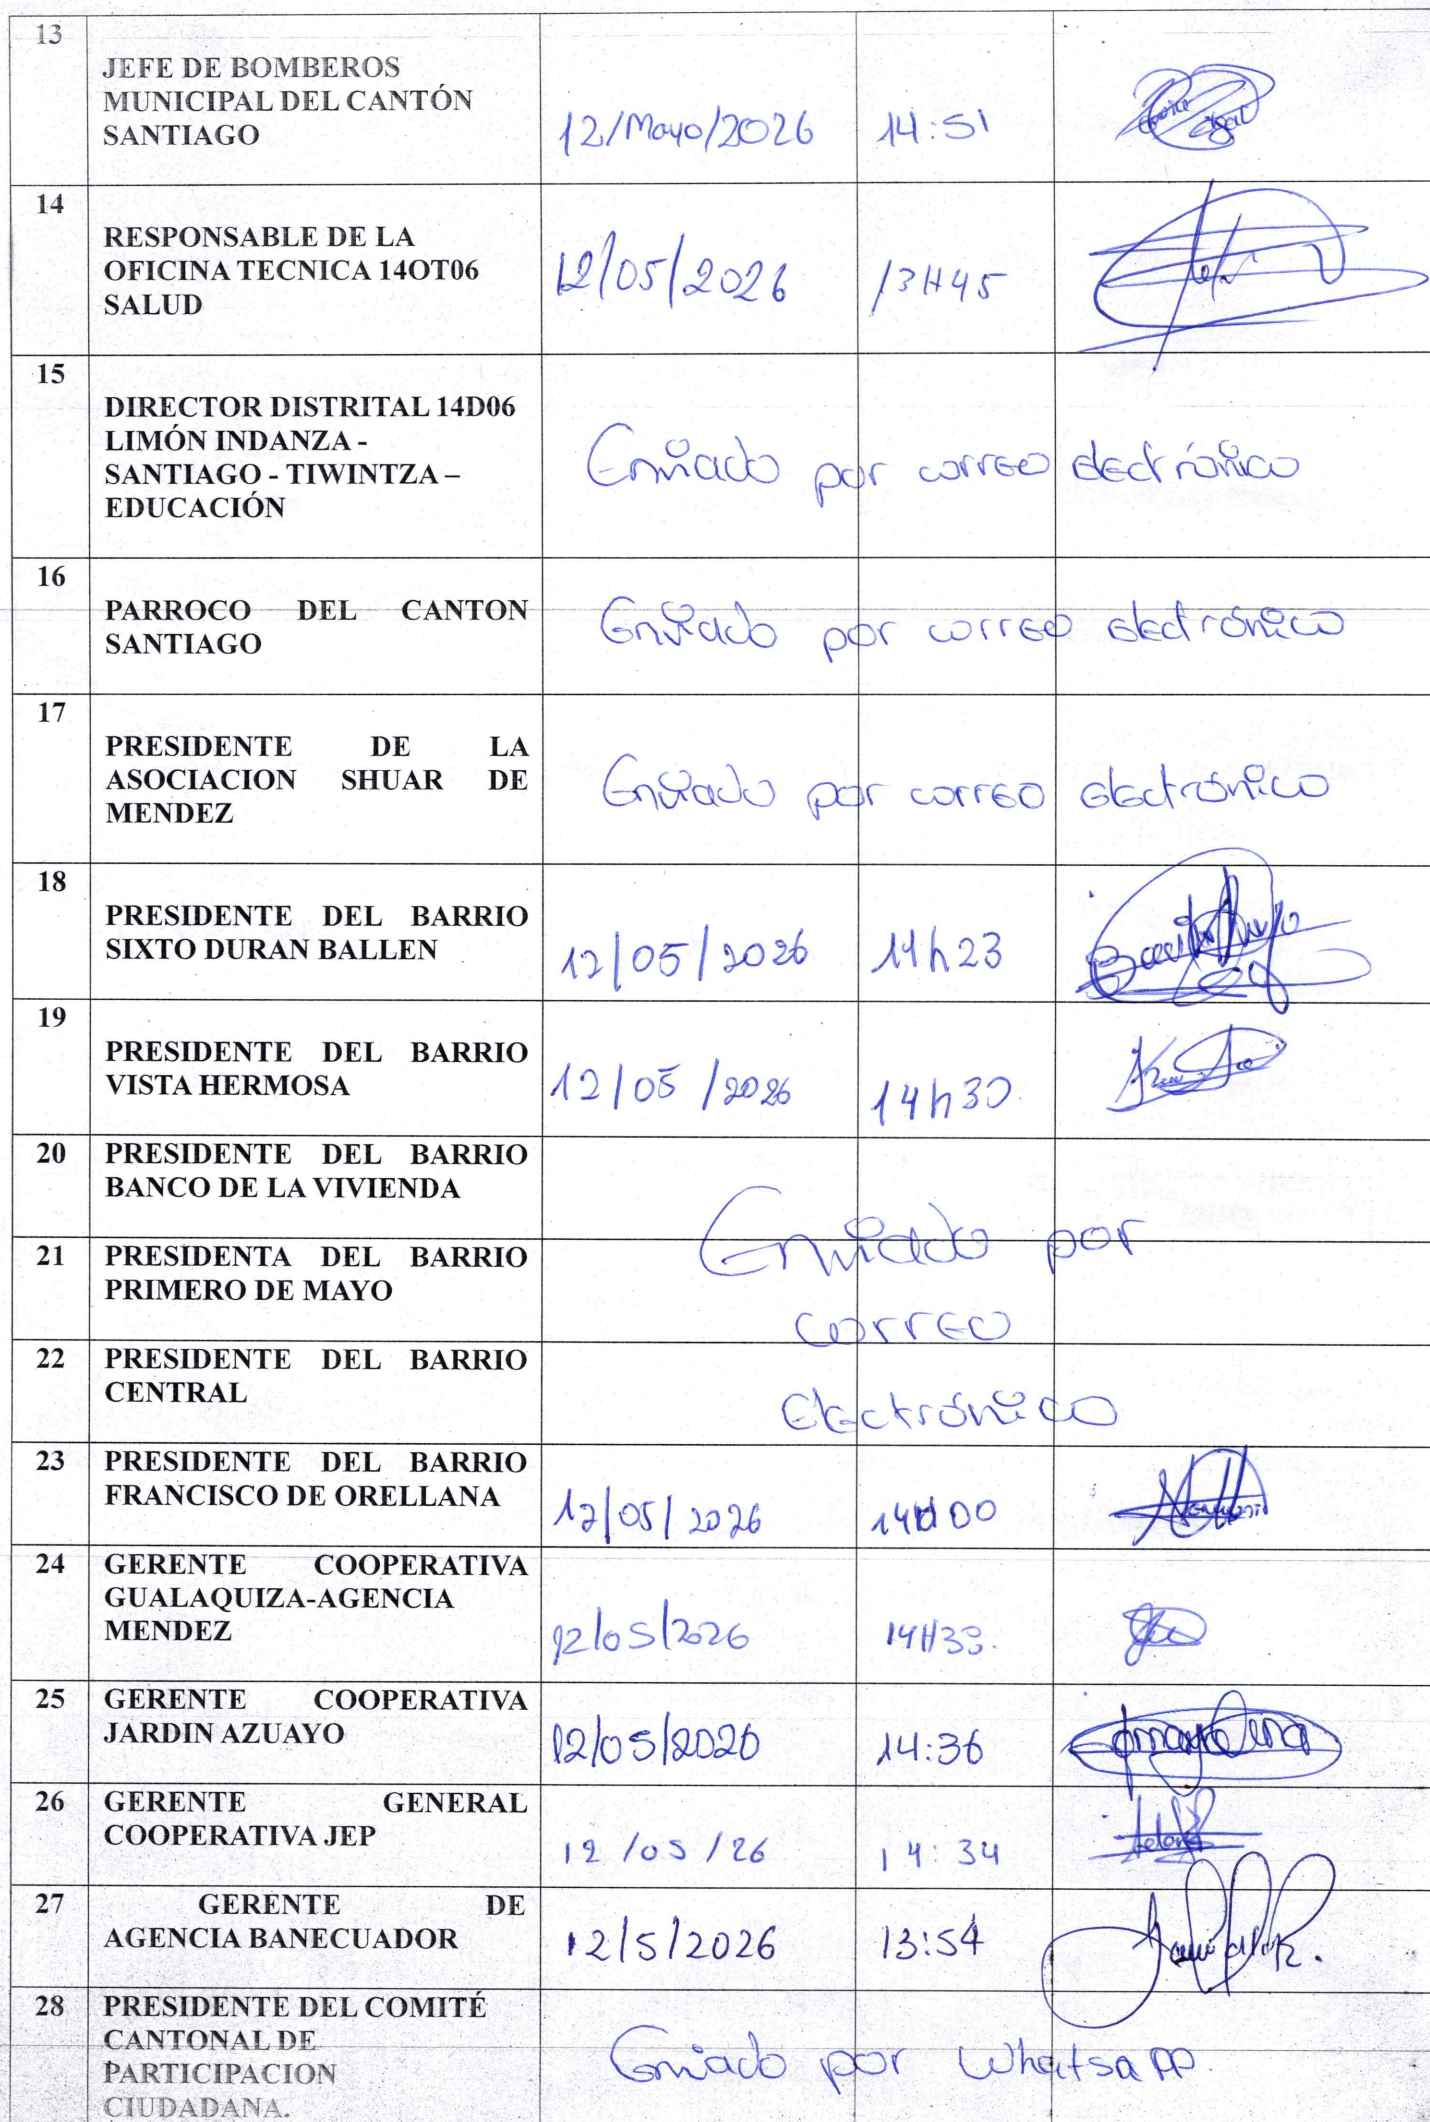 13
JEFE DE BOMBEROS
MUNICIPAL DEL CANTÓN
SANTIAGO
12/Mayo/2026 14:51
14
RESPONSABLE DE LA
OFICINA TECNICA 14OT06
SALUD
12/05/2026 13H45
15
DIRECTOR DISTRITAL 14D06
LIMÓN INDANZA -
SANTIAGO - TIWINTZA –
EDUCACIÓN
Enviado por correo electrónico
16
PARROCO DEL CANTON
SANTIAGO
Enviado por correo electrónico
17
PRESIDENTE DE LA
ASOCIACION SHUAR DE
MENDEZ
Enviado por correo electrónico
18
PRESIDENTE DEL BARRIO
SIXTO DURAN BALLEN
12/05/2026 14h23
19
PRESIDENTE DEL BARRIO
VISTA HERMOSA
12/05/2026 14h30
20 PRESIDENTE DEL BARRIO
BANCO DE LA VIVIENDA
21 PRESIDENTA DEL BARRIO
PRIMERO DE MAYO
22 PRESIDENTE DEL BARRIO
CENTRAL
Enviado por
correo
electrónico
23 PRESIDENTE DEL BARRIO
FRANCISCO DE ORELLANA
12/05/2026 14H00
24 GERENTE COOPERATIVA
GUALAQUIZA-AGENCIA
MENDEZ
12/05/2026
25 GERENTE COOPERATIVA
JARDIN AZUAYO
12/05/2026 14:36
26 GERENTE GENERAL
COOPERATIVA JEP
12/05/26 14:34
27 GERENTE DE
AGENCIA BANECUADOR
12/5/2026 13:54
28 PRESIDENTE DEL COMITÉ
CANTONAL DE
PARTICIPACION
CIUDADANA.
Enviado por WhatsApp.